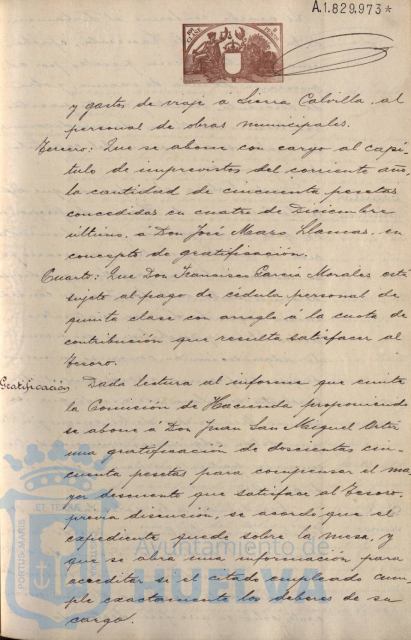 A.1.829.973*
y gastos de viaje á Sierra Calvilla, al
personal de obras municipales.
Tercero: Que se abone con cargo al capí-
tulo de imprevistos del corriente año,
la cantidad de cincuenta pesetas
concedidas en cuatro de Diciembre
último, á Don José Maro Llamas, en
concepto de gratificación.
Cuarto: Que Don Francisco García Morales está
sujeto al pago de cédula personal de
quinta clase con arreglo á la cuota de
contribución que resulta satisfacer al
Tesoro.
Gratificación Dada lectura al informe que emite
la Comisión de Hacienda proponiendo
se abone á Don Juan San Miguel
una gratificación de doscientas cin-
cuenta pesetas para compensar el ma-
yor descuento que satisface al Tesoro,
previa discusión, se acordó que el
expediente quede sobre la mesa, y
que se abra una información para
acreditar si el citado empleado cum-
ple exactamente los deberes de su
cargo.
PORTUS MARIS
ET TERRÆ
Ayuntamiento de
HUELVA